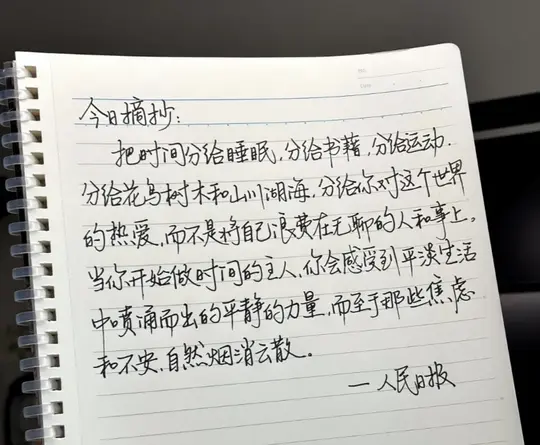 今日摘抄:
把时间分给睡眠,分给书籍,分给运动.
分给花鸟树木和山川湖海,分给你对这个世界
的热爱,而不是将自己浪费在无聊的人和事上。
当你开始做时间的主人,你会感受到平淡生活
中喷涌而出的平静的力量,而至于那些焦虑
和不安,自然烟消云散。
—人民日报